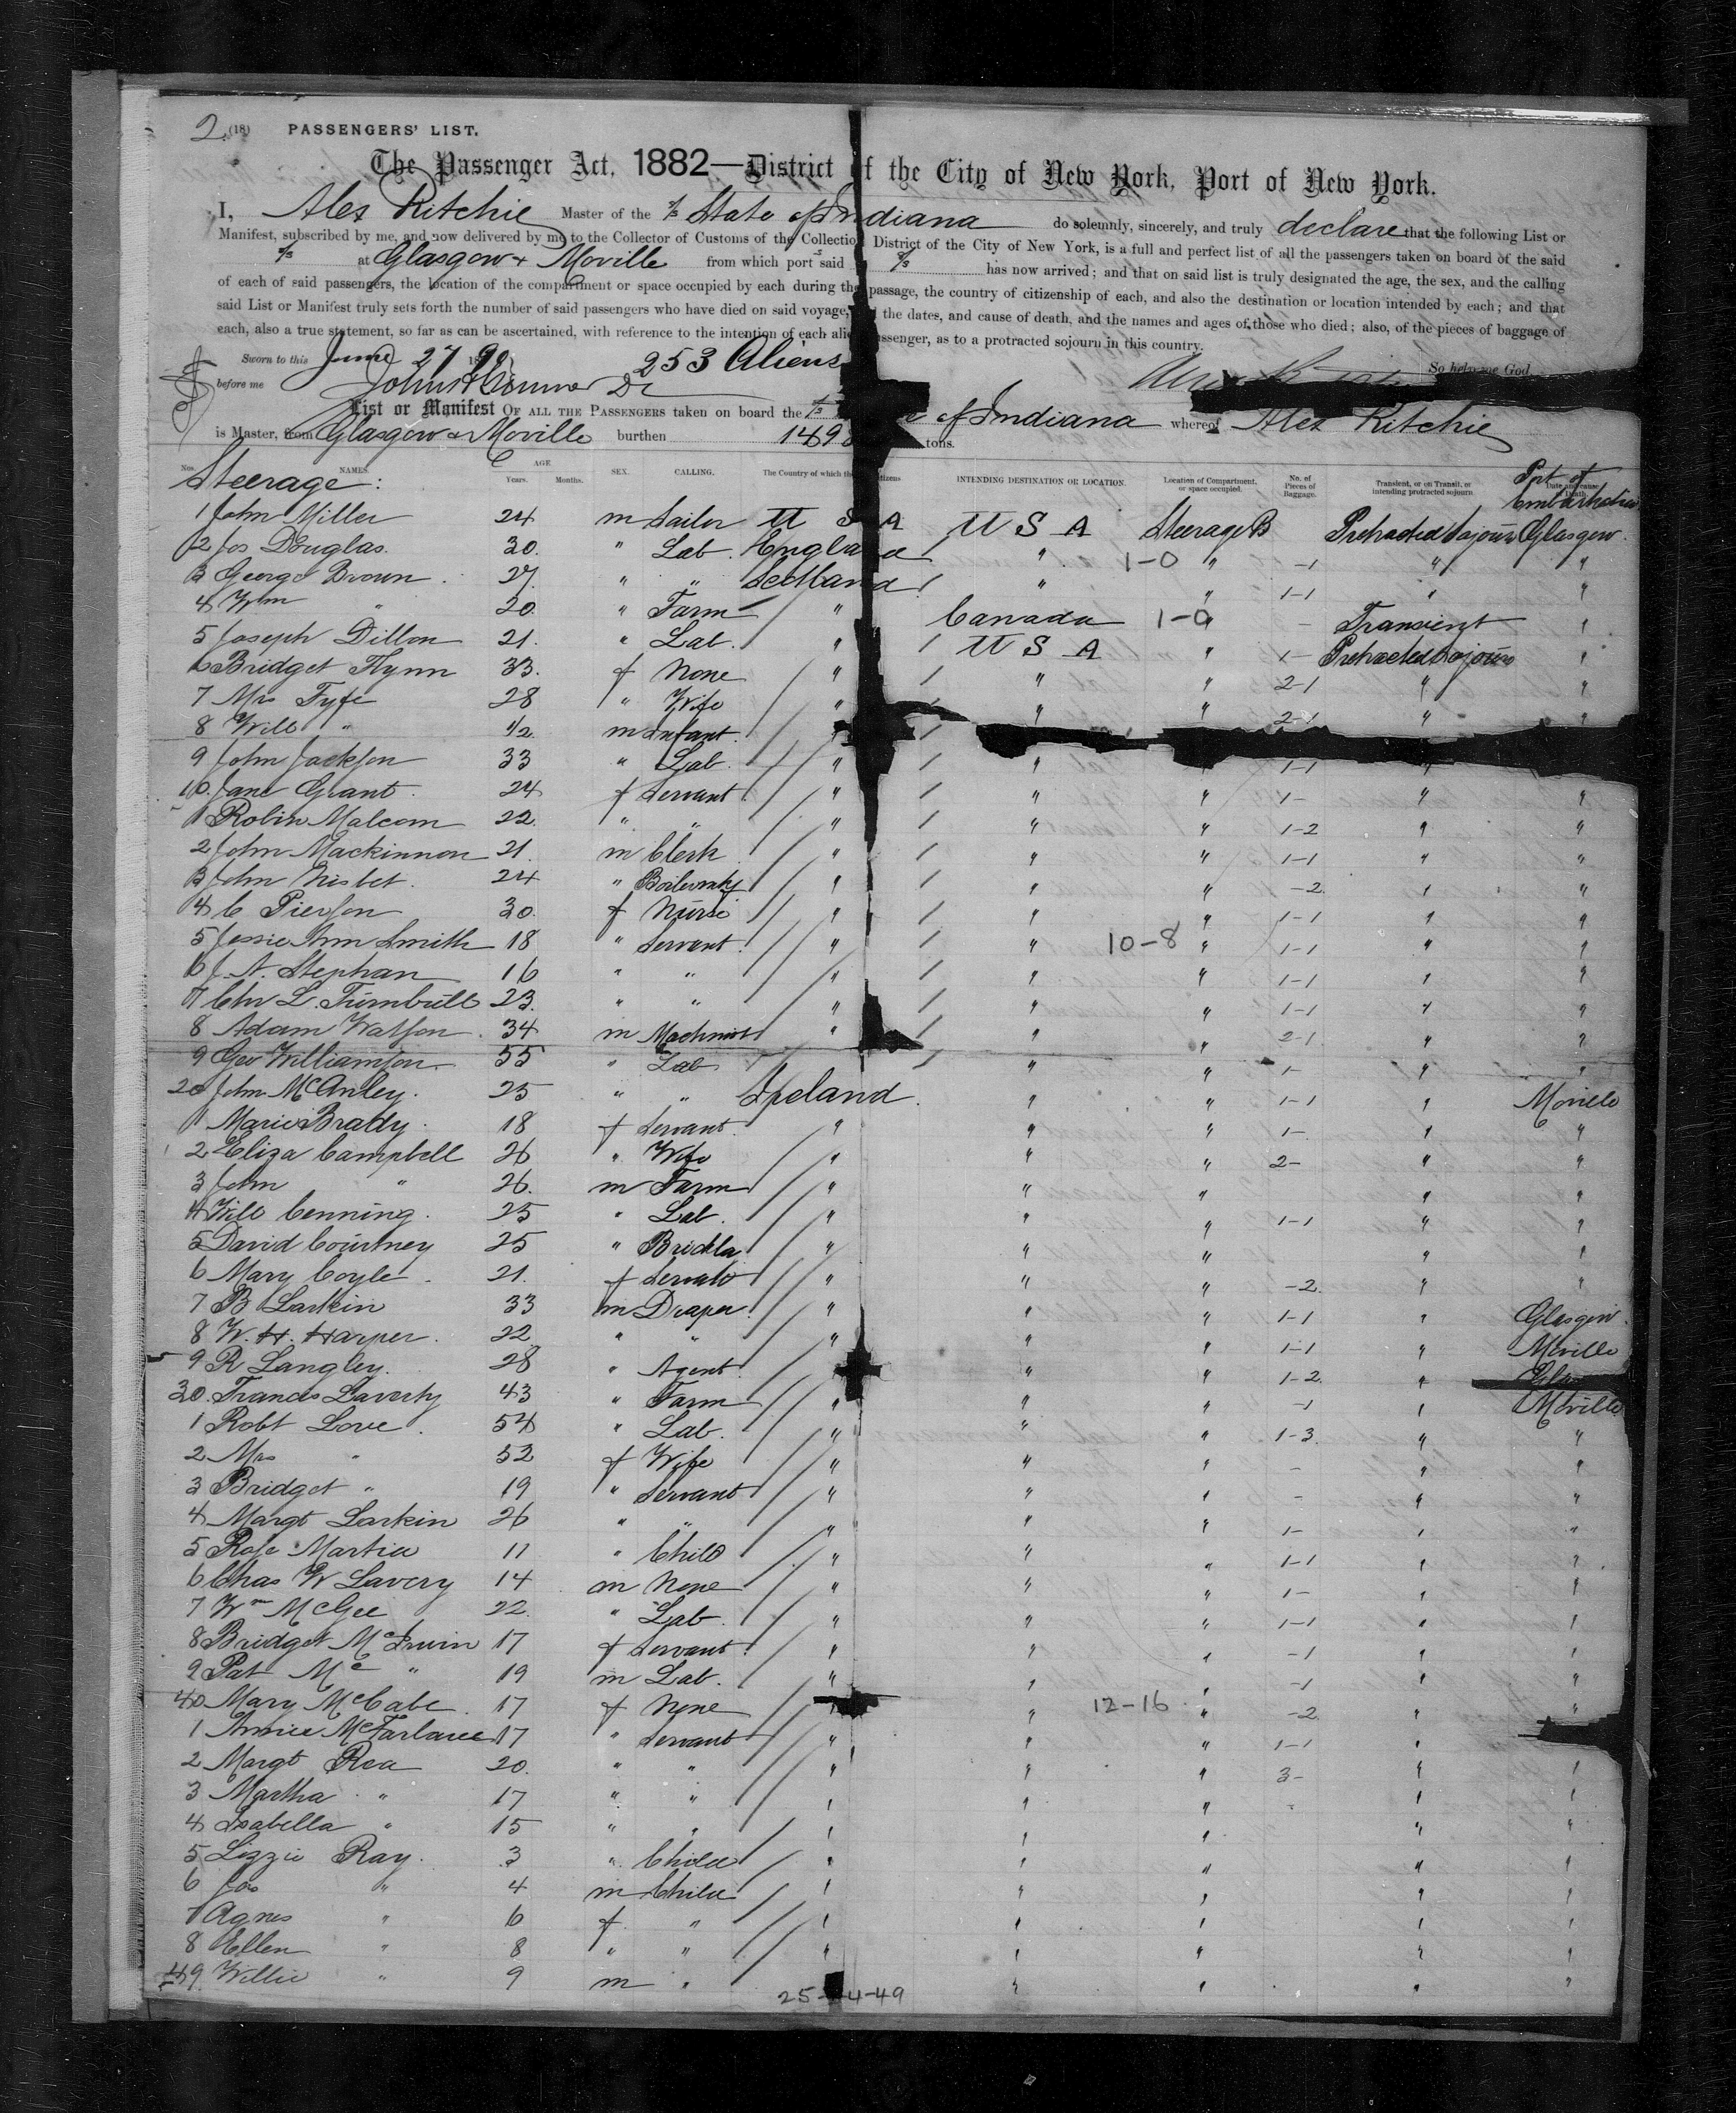 2 (18) PASSENGERS' LIST.
The Passenger Act, 1882—District of the City of New York, Port of New York.
I, Alex Ritchie Master of the S/S State of Indiana do solemnly, sincerely, and truly declare that the following List or
Manifest, subscribed by me, and now delivered by me to the Collector of Customs of the Collection District of the City of New York, is a full and perfect list of all the passengers taken on board of the said
S/S at Glasgow & Moville from which port s said S/S has now arrived; and that on said list is truly designated the age, the sex, and the calling
of each of said passengers, the location of the compartment or space occupied by each during the passage, the country of citizenship of each, and also the destination or location intended by each; and that
said List or Manifest truly sets forth the number of said passengers who have died on said voyage, the dates, and cause of death, and the names and ages of those who died; also, of the pieces of baggage of
each, also a true statement, so far as can be ascertained, with reference to the intention of each alien passenger, as to a protracted sojourn in this country.
Sworn to this June 27 1890 253 Aliens
before me So help me God
List or Manifest OF ALL THE PASSENGERS taken on board the S/S of Indiana whereof Alex Ritchie
is Master, from Glasgow & Moville burthen 149 tons.
Nos. NAMES. AGE Years. Months. SEX. CALLING. The Country of which they citizens INTENDING DESTINATION OR LOCATION. Location of Compartment, or space occupied. No. of Pieces of Baggage. Transient, or on Transit, or intending protracted sojourn Port of Embarkation
Steerage:
1 John Miller 24 m Sailor U S A U S A Steerage B Protracted Sojourn Glasgow
2 Jos Douglas 30 " Lab England " 1-0 " -1 " "
3 George Brown 27 " " Scotland " " 1-1 " "
4 Wm " 20 " Farm " Canada 1-0 " - Transient "
5 Joseph Dillon 21 " Lab " U S A " 1- Protracted Sojourn "
6 Bridget Flynn 33 f None " " " 2-1 " "
7 Mrs Fyfe 28 " Wife " " " 2-1 " "
8 Will " 1/2 m Infant "
9 John Jackson 33 " Lab " " 1-1 "
10 Jane Grant 24 f Servant " " " 1- " "
1 Robin Malcom 22 " " " " " 1-2 " "
2 John Mackinnon 21 m Clerk " " " 1-1 " "
3 John Nisbet 24 " Boilermkr " " " -2 " "
4 C Pierson 30 f Nurse " " " 1-1 " "
5 Jessie Ann Smith 18 " Servant " " 10-8 " 1-1 " "
6 J. A. Stephan 16 " " " " " 1-1 " "
7 Chr L. Turnbull 23 " " " " " 1-1 " "
8 Adam Watson 34 m Machinist " " " 2-1 " "
9 Geo Williamson 55 " Lab " " 1- " "
20 John McAnley 25 " " Ireland " " 1-1 " Moville
1 Marie Brady 18 f Servant " " " 1- " "
2 Eliza Campbell 26 " Wife " " " 2- " "
3 John " 26 m Farm " " " " "
4 Will Cenning 25 " Lab " " " 1-1 " "
5 David Courtney 25 " Brickla " " " " "
6 Mary Coyle 21 f Servant " " " -2 " "
7 B Larkin 33 m Draper " " " 1-1 " Glasgow
8 W. H. Harper 22 " " " " " 1-1 " Moville
9 R Langley 28 " Agent " " 1-2 "
30 Francis Laverty 43 " Farm " " " -1 " Moville
1 Robt Love 54 " Lab " " " 1-3 " "
2 Mrs " 52 f Wife " " " - " "
3 Bridget " 19 " Servant " " " - " "
4 Margt Larkin 26 " " " " " 1- " "
5 Rose Martin 11 " Child " " " 1-1 " "
6 Chas W Lavery 14 m None " " " 1- " "
7 Wm McGee 22 " Lab " " " 1-1 " "
8 Bridget McIrwin 17 f Servant " " " -1 " "
9 Pat Mc " 19 m Lab " " " -1 " "
40 Mary McCabe 17 f None " 12-16 " -2 " "
1 Annie McFarlane 17 " Servant " " " 1-1 "
2 Margt Rea 20 " " " " " 3- " "
3 Martha " 17 " " " " " " "
4 Isabella " 15 " " " " " " "
5 Lizzie Ray 3 " Child " " " " "
6 Jas " 4 m Child " " " " "
7 Agnes " 6 f " " " " " "
8 Ellen " 8 " " " " " " "
49 Willie " 9 m " " " " "
25- 4-49